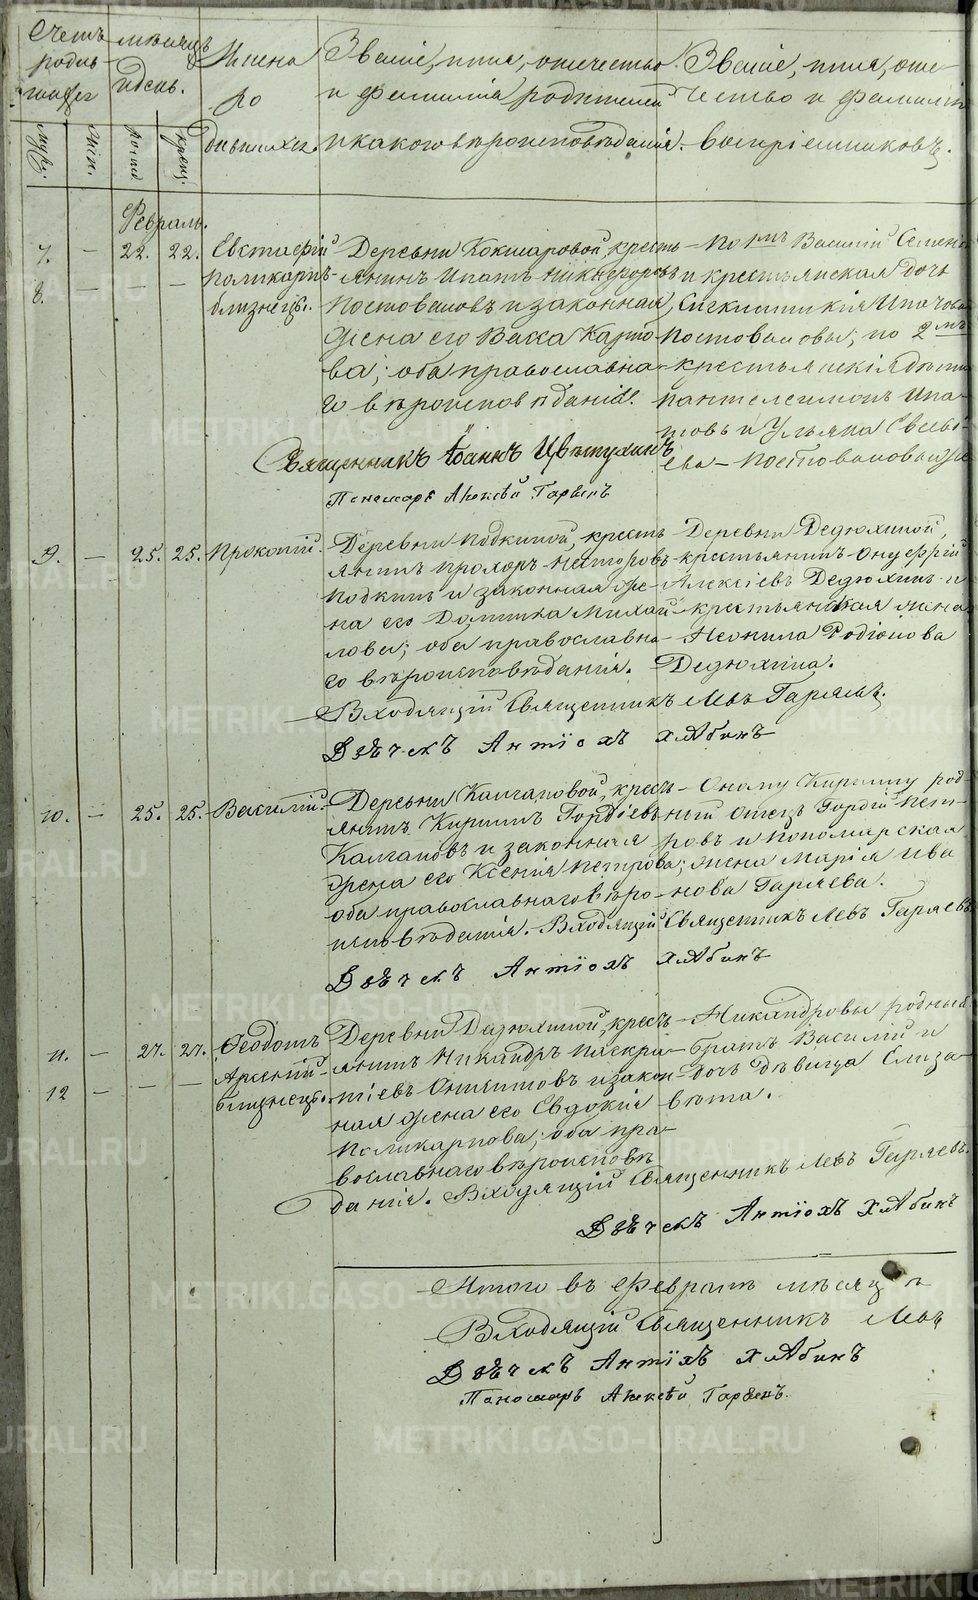 Счетъ родившихся
мѣсяцъ и день.
Имена родившихся.
Званіе, имя, отечество и фамилія родителей и какого вѣроисповѣданія.
Званіе, имя, отечество и фамилія воспріемниковъ.
муж.
жен.
рожд.
крещ.
Февраль.
7. – 22. 22.
8. – – –
Евстафій
Поликарпъ
близнецы.
Деревни Кокшаровой, кресть-
янинъ Ипатъ Никифоровъ
Постоваловъ и законная
жена его Васса Карпо
ва; оба православна-
го вѣроисповѣданія.
По 1мъ Василій Семено
и крестьянская дочь
Сигклитикія Ипатова
Постовалова; по 2мъ
крестьянскія дѣти
Пантелеимонъ Ипа-
товъ и Ульяна Евсевь-
ева – Постоваловы
Священникъ Іоаннъ Цвѣтухинъ
Пономарь Алексѣй Гаряевъ
9. – 25. 25. Прокопій.
Деревни Подкиной, кресть
янинъ Прохоръ Несторовъ
Подкинъ и законная же-
на его Домника Михай
лова; оба православна-
го вѣроисповѣданія.
Деревни Дедюхиной,
крестьянинъ Онуфрій
Алексіевъ Дедюхинъ и
крестьянская жена
Неонила Родіонова
Дедюхина.
Входящій Священникъ Левъ Гаряевъ.
Дьячекъ Антіохъ Хлябинъ
10. – 25. 25. Василій.
Деревни Калгановой, крес-
янинъ Кириллъ Гордіевъ
Калгановъ и законная
жена его Ксенія Петрова;
оба православнаго вѣро-
исповѣданія.
Оному Кириллу род-
ный отецъ Гордій Пет-
ровъ и пономарская
жена Марія Ива
нова Гаряева.
Входящій Священникъ Левъ Гаряевъ
Дьячекъ Антіохъ Хлябинъ
11. – 27. 27.
12 – – –
Ѳеодотъ
Арсеній
близнецы.
Деревни Дедюхиной, кресть
янинъ Никандръ Панкра-
тіевъ Онтиповъ и закон-
ная жена его Евдокія
Поликарпова; оба пра-
вославнаго вѣроисповѣ
данія.
Никандровы родный
братъ Василій и
дочь дѣвица Елиза-
вета.
Входящій Священникъ Левъ Гаряевъ.
Дьячекъ Антіохъ Хлябинъ
Итого въ Февралѣ мѣсяцѣ
Входящій Священникъ Левъ
Дьячекъ Антіохъ Хлябинъ
Пономарь Алексѣй Гаряевъ.
METRIKI.GASO-URAL.RU